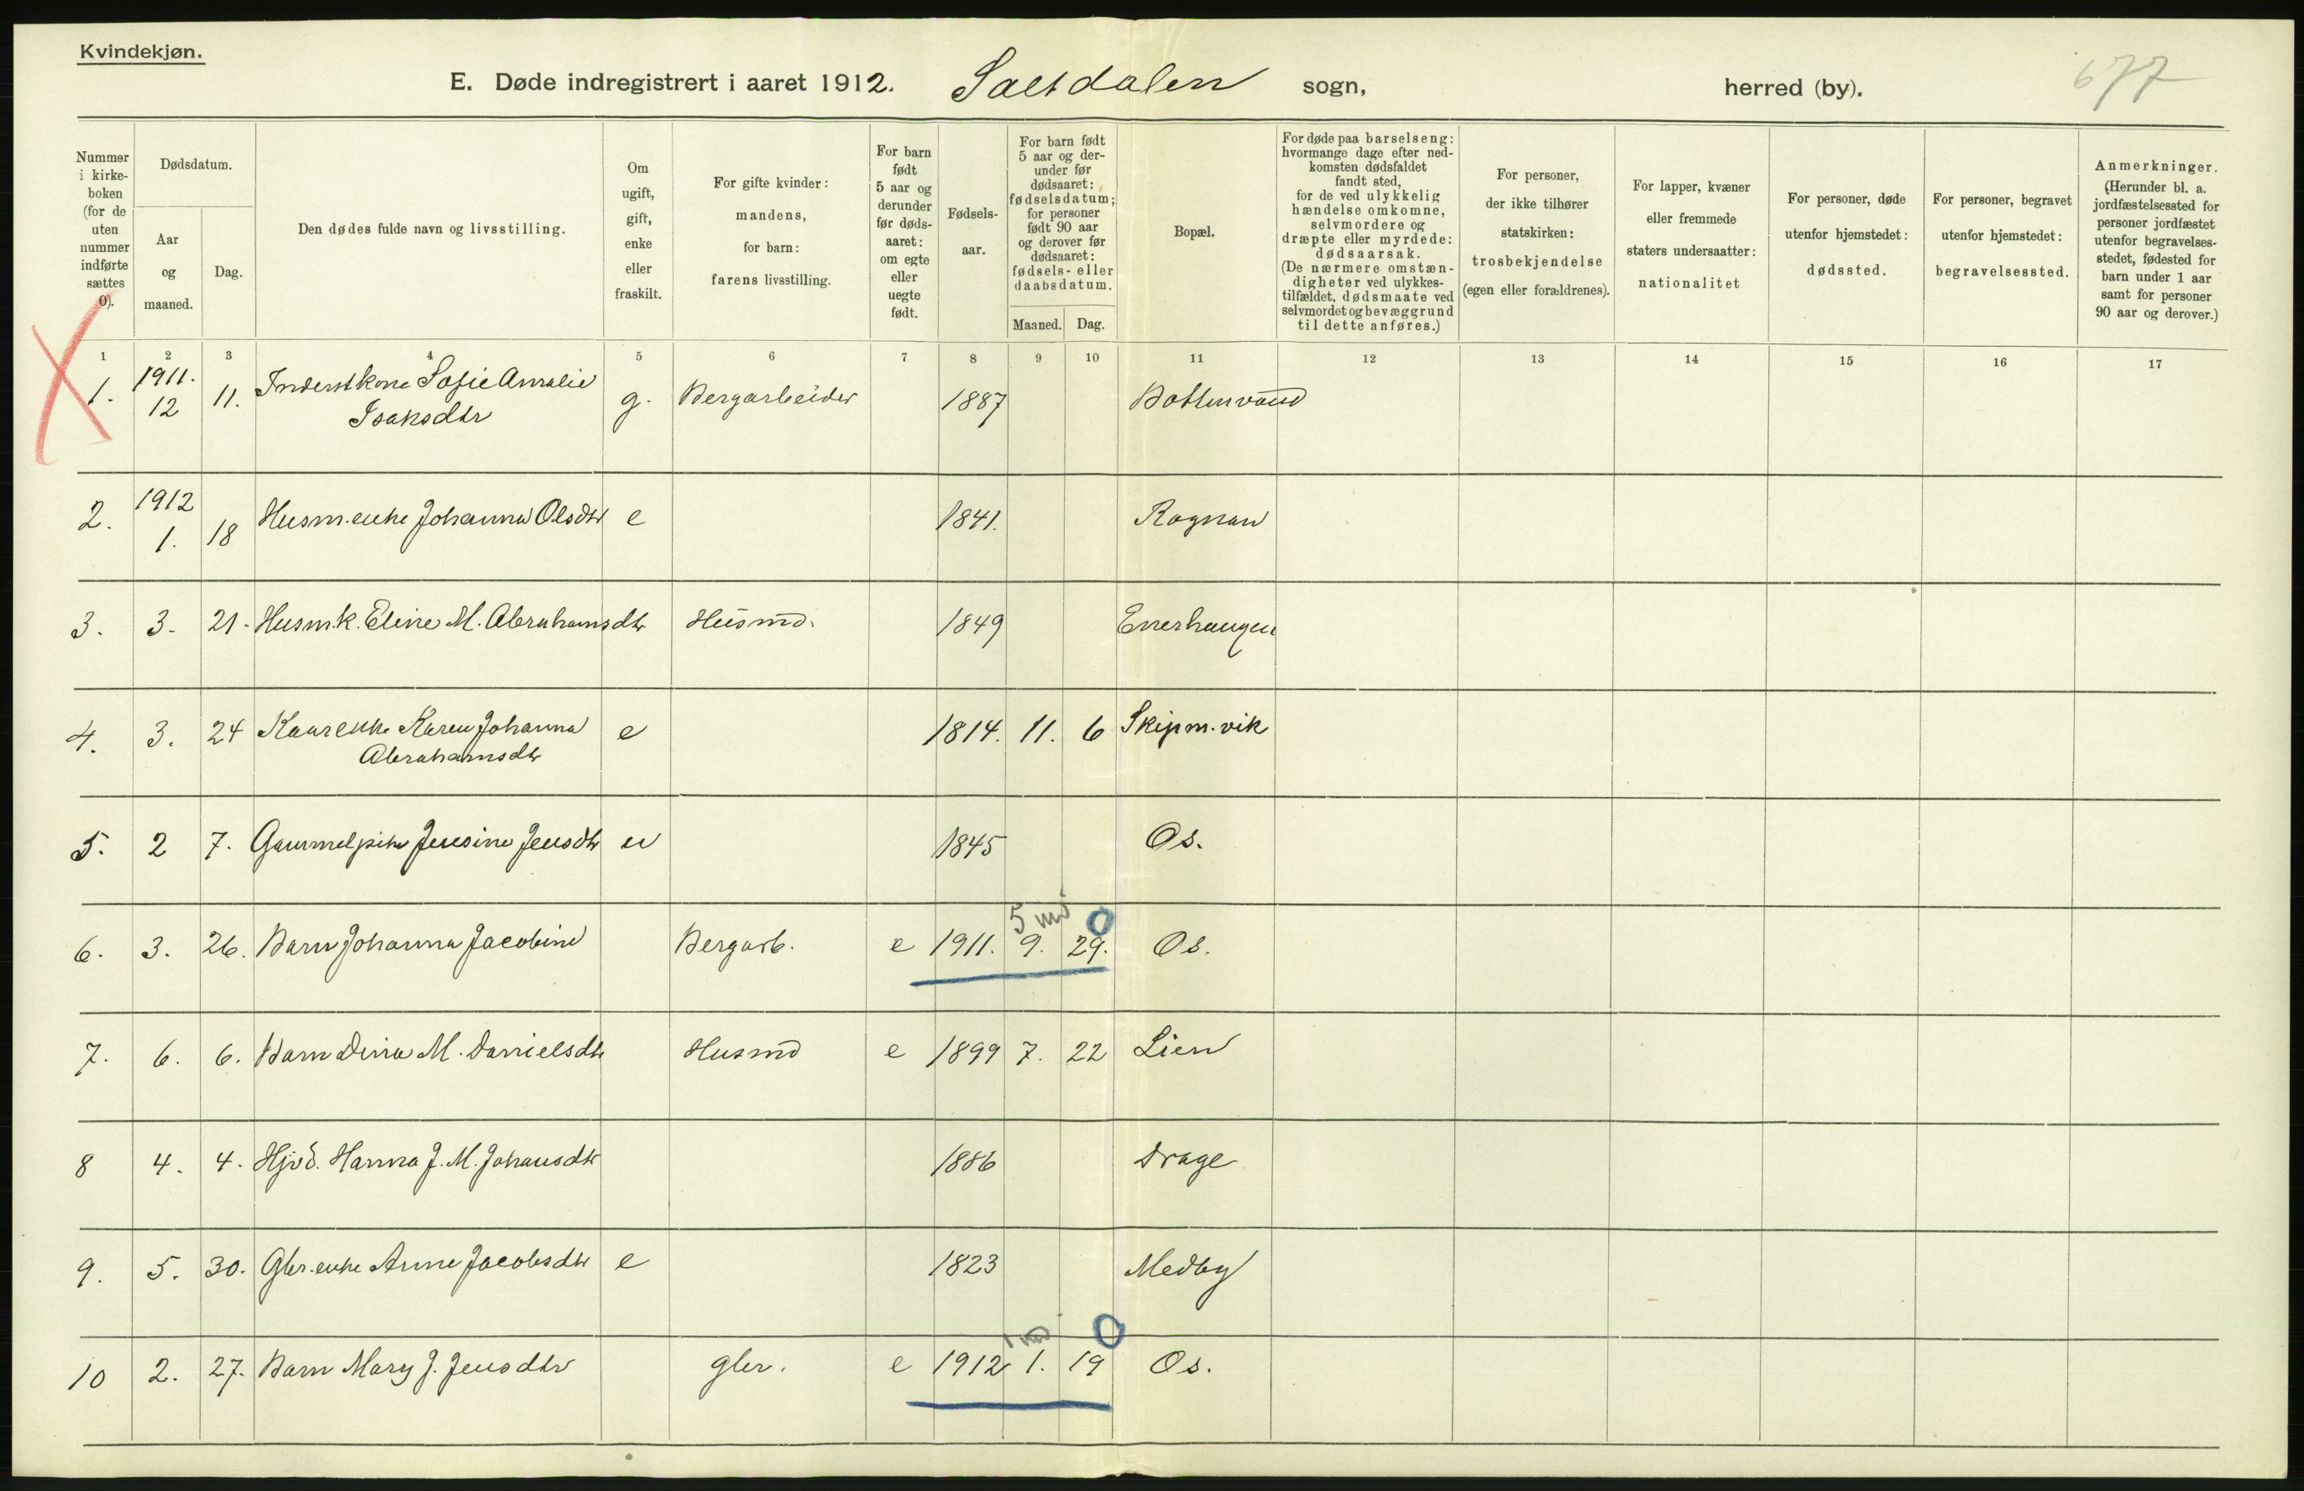 Kvindekjøn.
E. Døde indregistrert i aaret 1912. Saltdalen sogn, herred (by). 677
Nummer i kirke-boken (for de uten nummer indførte sættes 0).
Dødsdatum.
Aar og maaned.
Dag.
Den dødes fulde navn og livsstilling.
Om ugift, gift, enke eller fraskilt.
For gifte kvinder: mandens, for barn: farens livsstilling.
For barn født 5 aar og derunder før døds-aaret: om egte eller uegte født.
Fødsels-aar.
For barn født 5 aar og der-under før dødsaaret: fødselsdatum; for personer født 90 aar og derover før dødsaaret: fødsels- eller daabsdatum.
Maaned. Dag.
Bopæl.
For døde paa barselseng: hvormange dage efter ned-komsten dødsfaldet fandt sted, for de ved ulykkelig hændelse omkomne, selvmordere og dræpte eller myrdede: dødsaarsak. (De nærmere omstæn-digheter ved ulykkes-tilfældet, dødsmaate ved selvmordet og bevæggrund til dette anføres.)
For personer, der ikke tilhører statskirken: trosbekjendelse (egen eller forældrenes).
For lapper, kvæner eller fremmede staters undersaatter: nationalitet
For personer, døde utenfor hjemstedet: dødssted.
For personer, begravet utenfor hjemstedet: begravelsessted.
Anmerkninger. (Herunder bl. a. jordfæstelsessted for personer jordfæstet utenfor begravelses-stedet, fødested for barn under 1 aar samt for personer 90 aar og derover.)
1 2 3 4 5 6 7 8 9 10 11 12 13 14 15 16 17
1. 1911. 12 11. Inderstkone Sofie Amalie g. Bergarbeider 1887 Bottenvand
Isaksdtr
2. 1912 1. 18 Husm.enke Johanna Olsdtr e 1841. Rognan
3. 3. 21. Husm.k. Eline M. Abrahamsdtr Husmd. 1849 Enerhaugen
4. 3. 24 Kaarenke Karen Johanna e 1814. 11. 6 Skipm.vik
Abrahamsdtr
5. 2 7. Gammelpike Jensine Jensdtr u 1845 Os.
5 md 0
6. 3. 26. Barn Johanna Jacobine Bergarb. e 1911. 9. 29. Os.
7. 6. 6. Barn Dina M. Danielsdtr Husmd e 1899 7. 22 Lien
8 4. 4. Hjvd. Hanna J. M. Johansdtr 1886 Drage
9. 5. 30. Gbr.enke Anne Jacobsdtr e 1823 Medby
1 md 0
10 2. 27. Barn Mary J. Jensdtr gbr. e 1912 1. 19 Os.